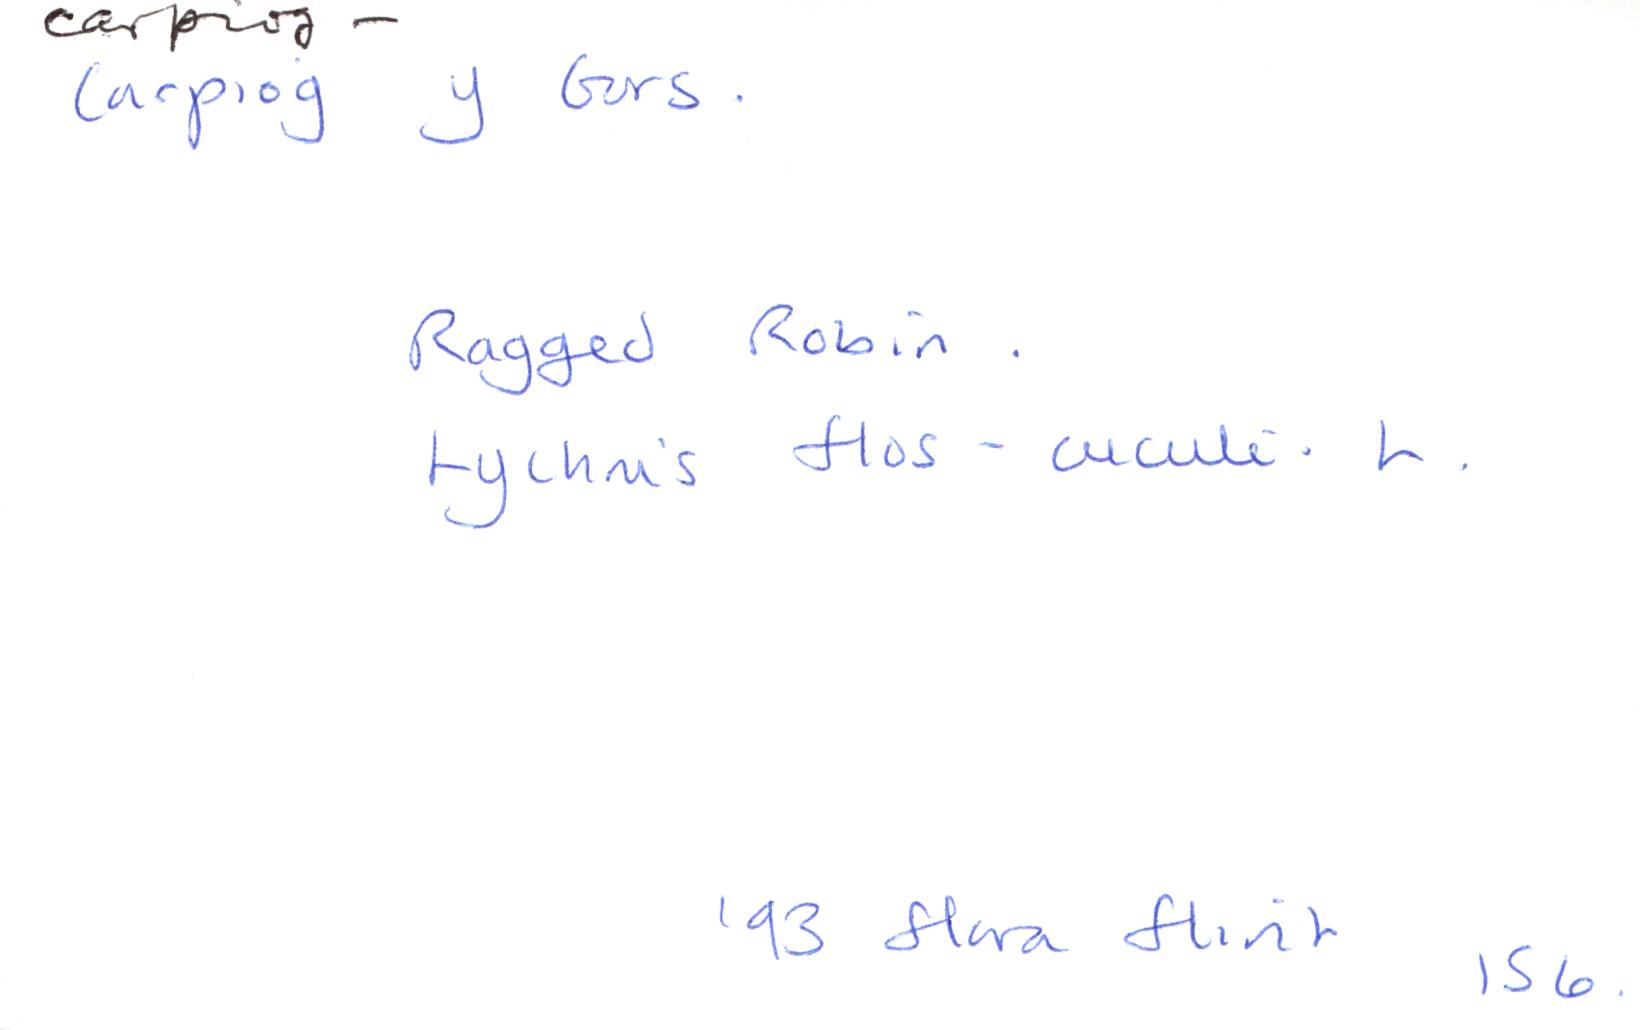 carpiog -
Carpiog y Gors.
Ragged Robin.
Lychnis flos-cuculi. L.
'93 Flora Flint
156.